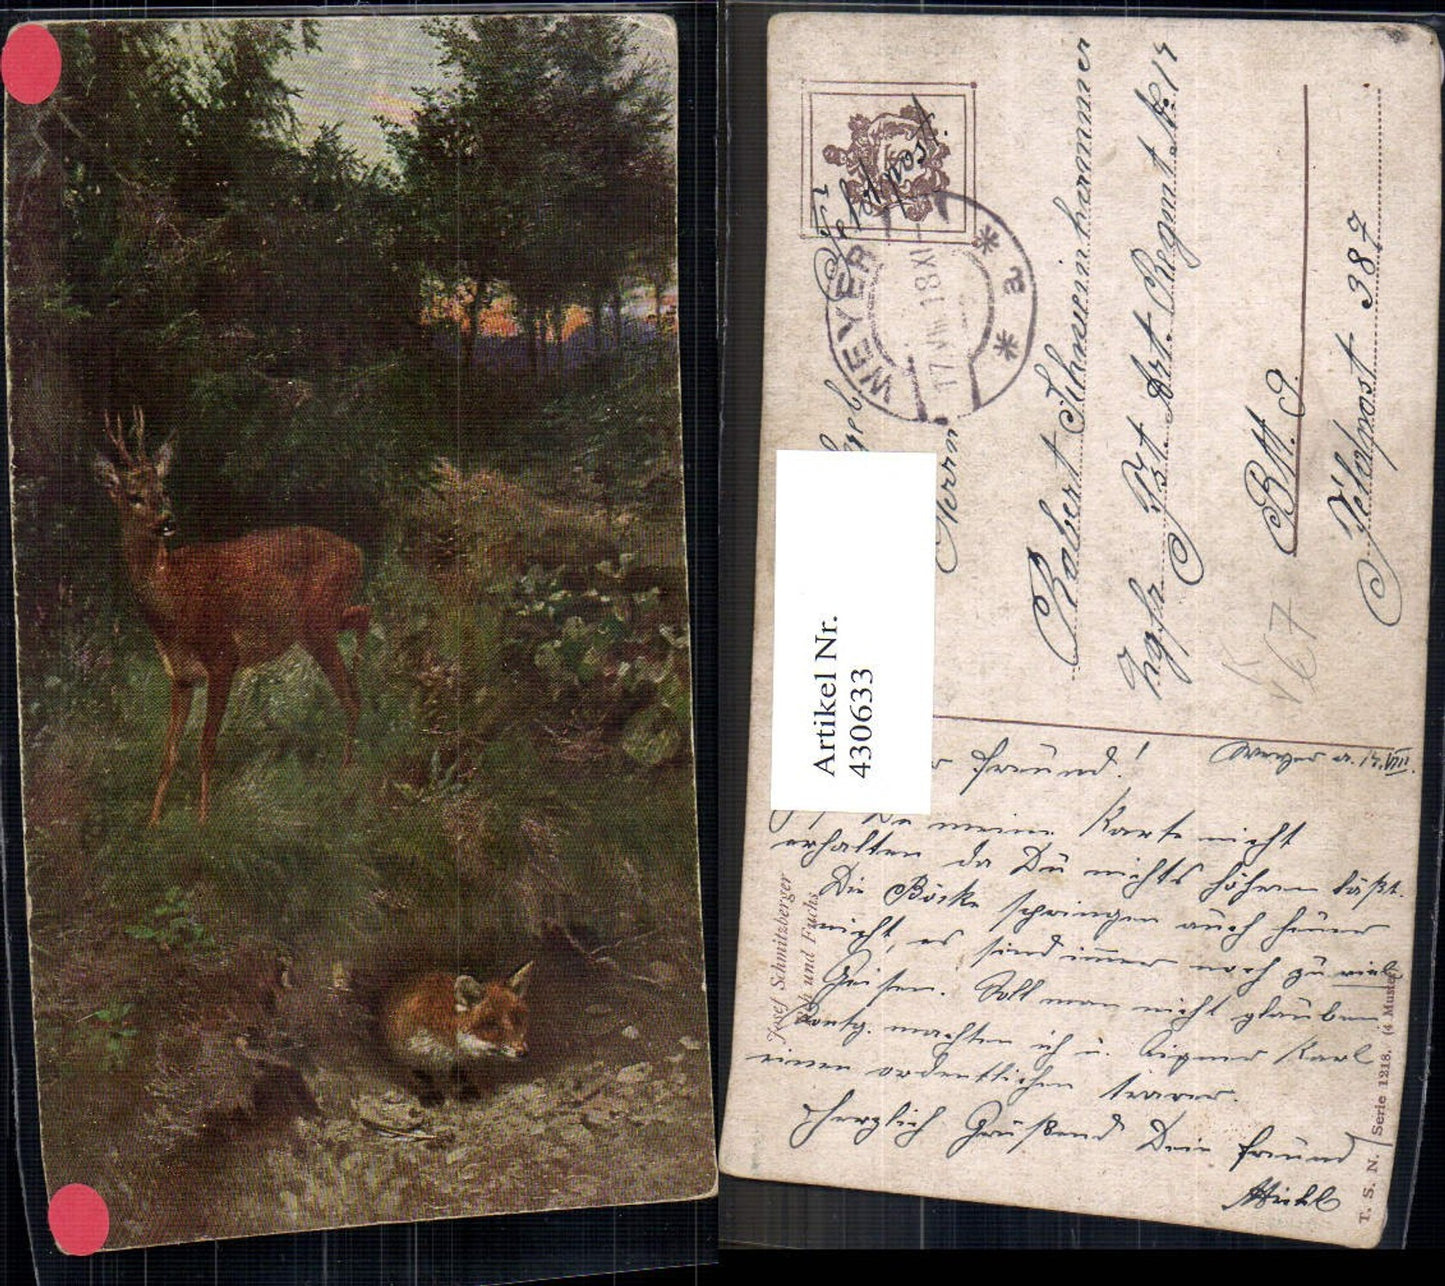 Artikel Nr.
430633
Feldpost.
WEYER
17. VIII. 18 XI
* a *
Herrn
Robert Schmeinhammer
Zgsfr. Fst. Art. Regmt. № 12
Batt. 9.
Feldpost 387
K 67
Weyer a. 17. VIII.
Freund!
Da meine Karte nicht
erhalten da Du nichts hören läßt.
Die Böcke springen auch heuer
nicht, es sind immer noch zu viel
Geisen. Soll man nicht glauben
machten ich u. Karl
einen ordentlichen
Herzlich Grüßend Dein Freund
Michl
Josef Schmitzberger
Reh und Fuchs
T. S. N. Serie 1218. (4 Muster)